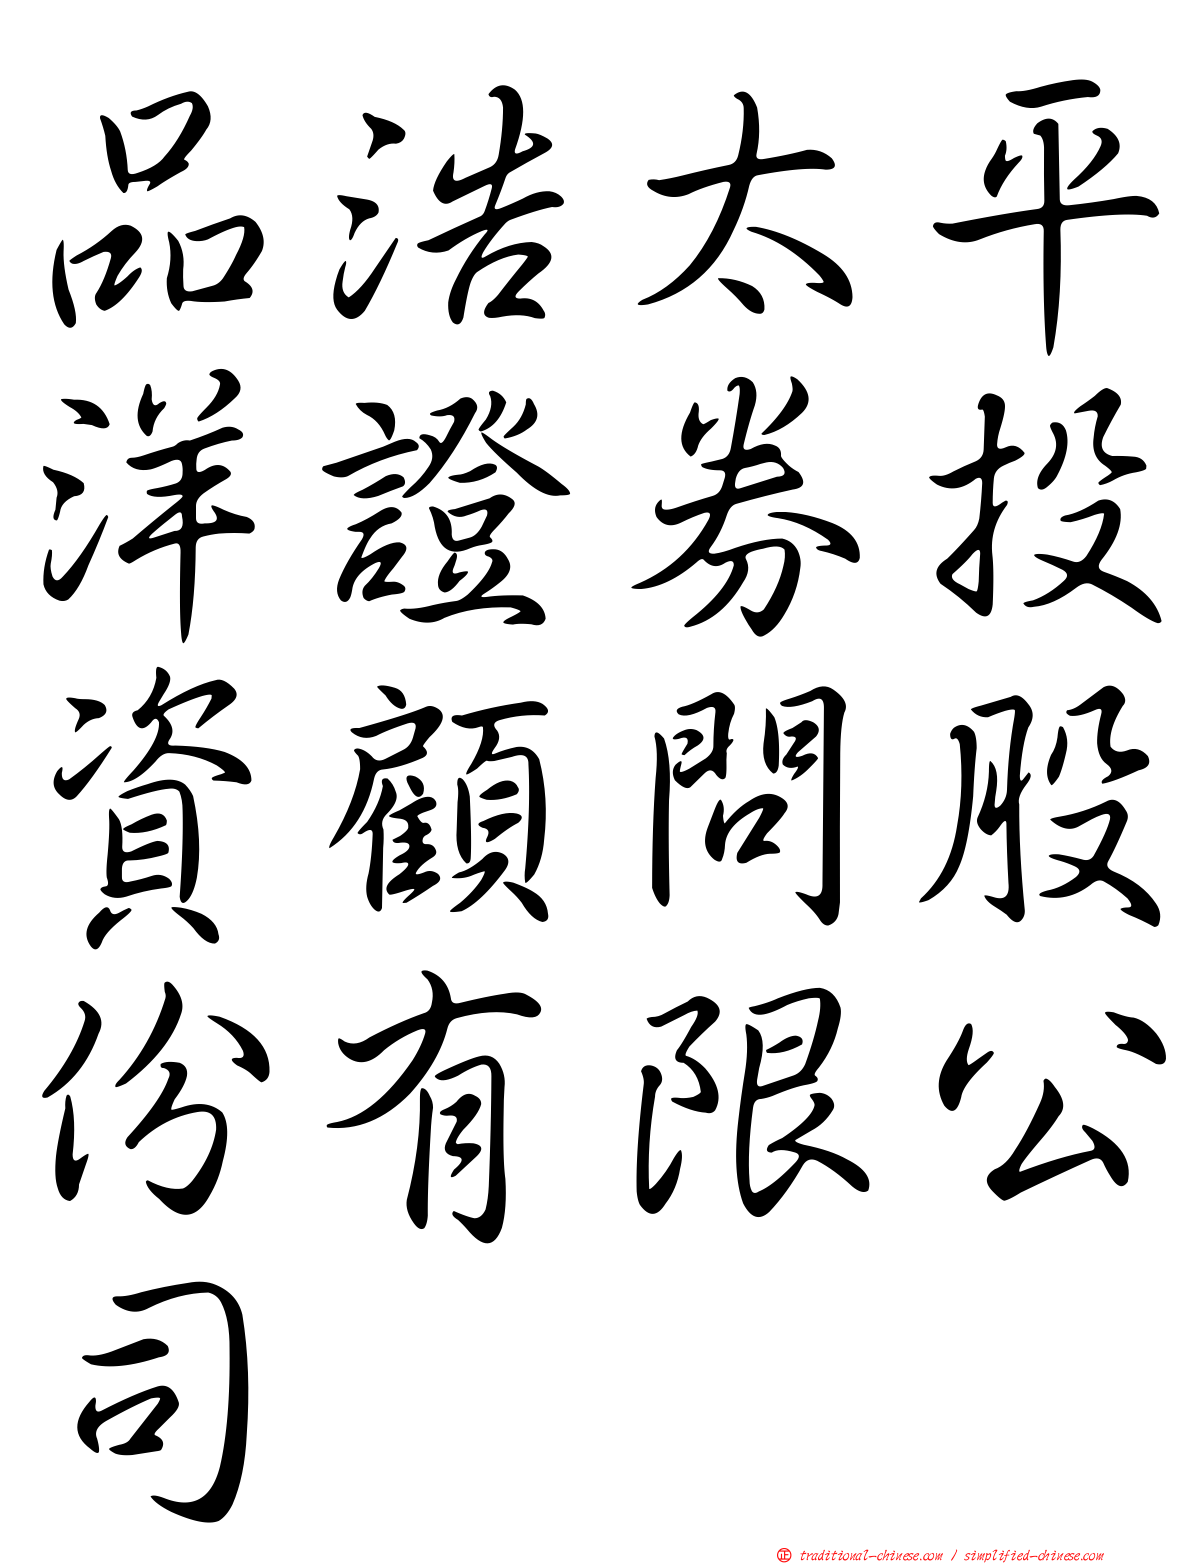 品浩太平
洋證券投
資顧問股
份有限公
司
正 traditional-chinese.com / simplified-chinese.com